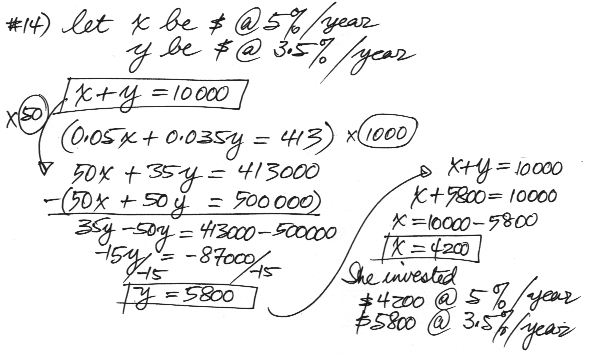 #14) let x be $ @ 5%/year
y be $ @ 3.5%/year
x + y = 10000
x 50
(0.05x + 0.035y = 413) x 1000
50x + 35y = 413000
-(50x + 50y = 500000)
35y - 50y = 43000 - 500000
-15y = -87000
/-15 /-15
y = 5800
x + y = 10000
x + 5800 = 10000
x = 10000 - 5800
x = 4200
She invested
$4200 @ 5%/year
$5800 @ 3.5%/year